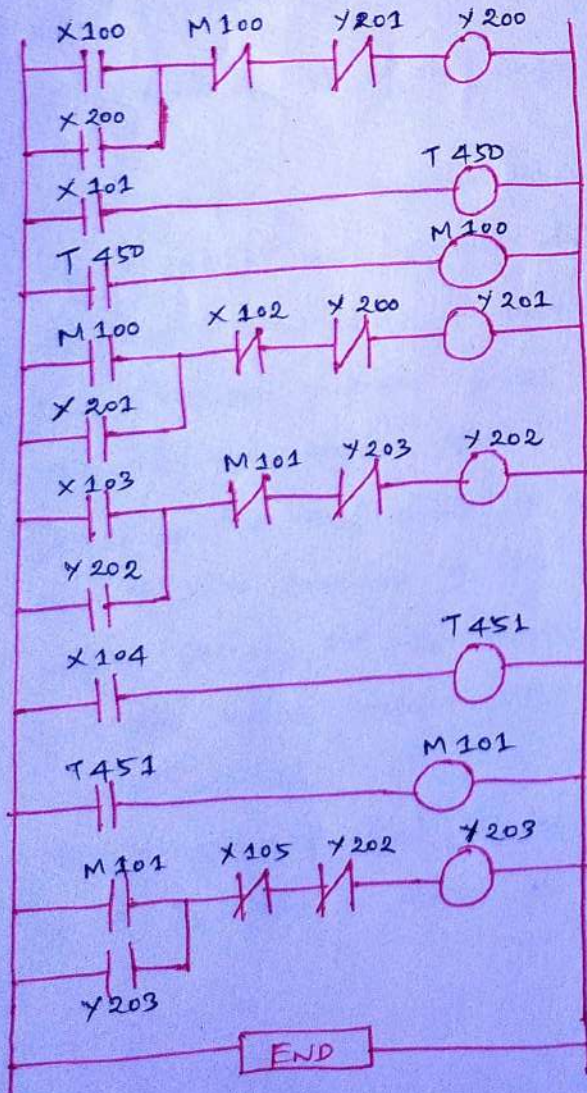 X100 M100 Y201 Y200
X200
X101 T450
T450 M100
M100 X102 Y200 Y201
X201
X103 M101 Y203 Y202
Y202
X104 T451
T451 M101
M101 X105 Y202 Y203
Y203
END